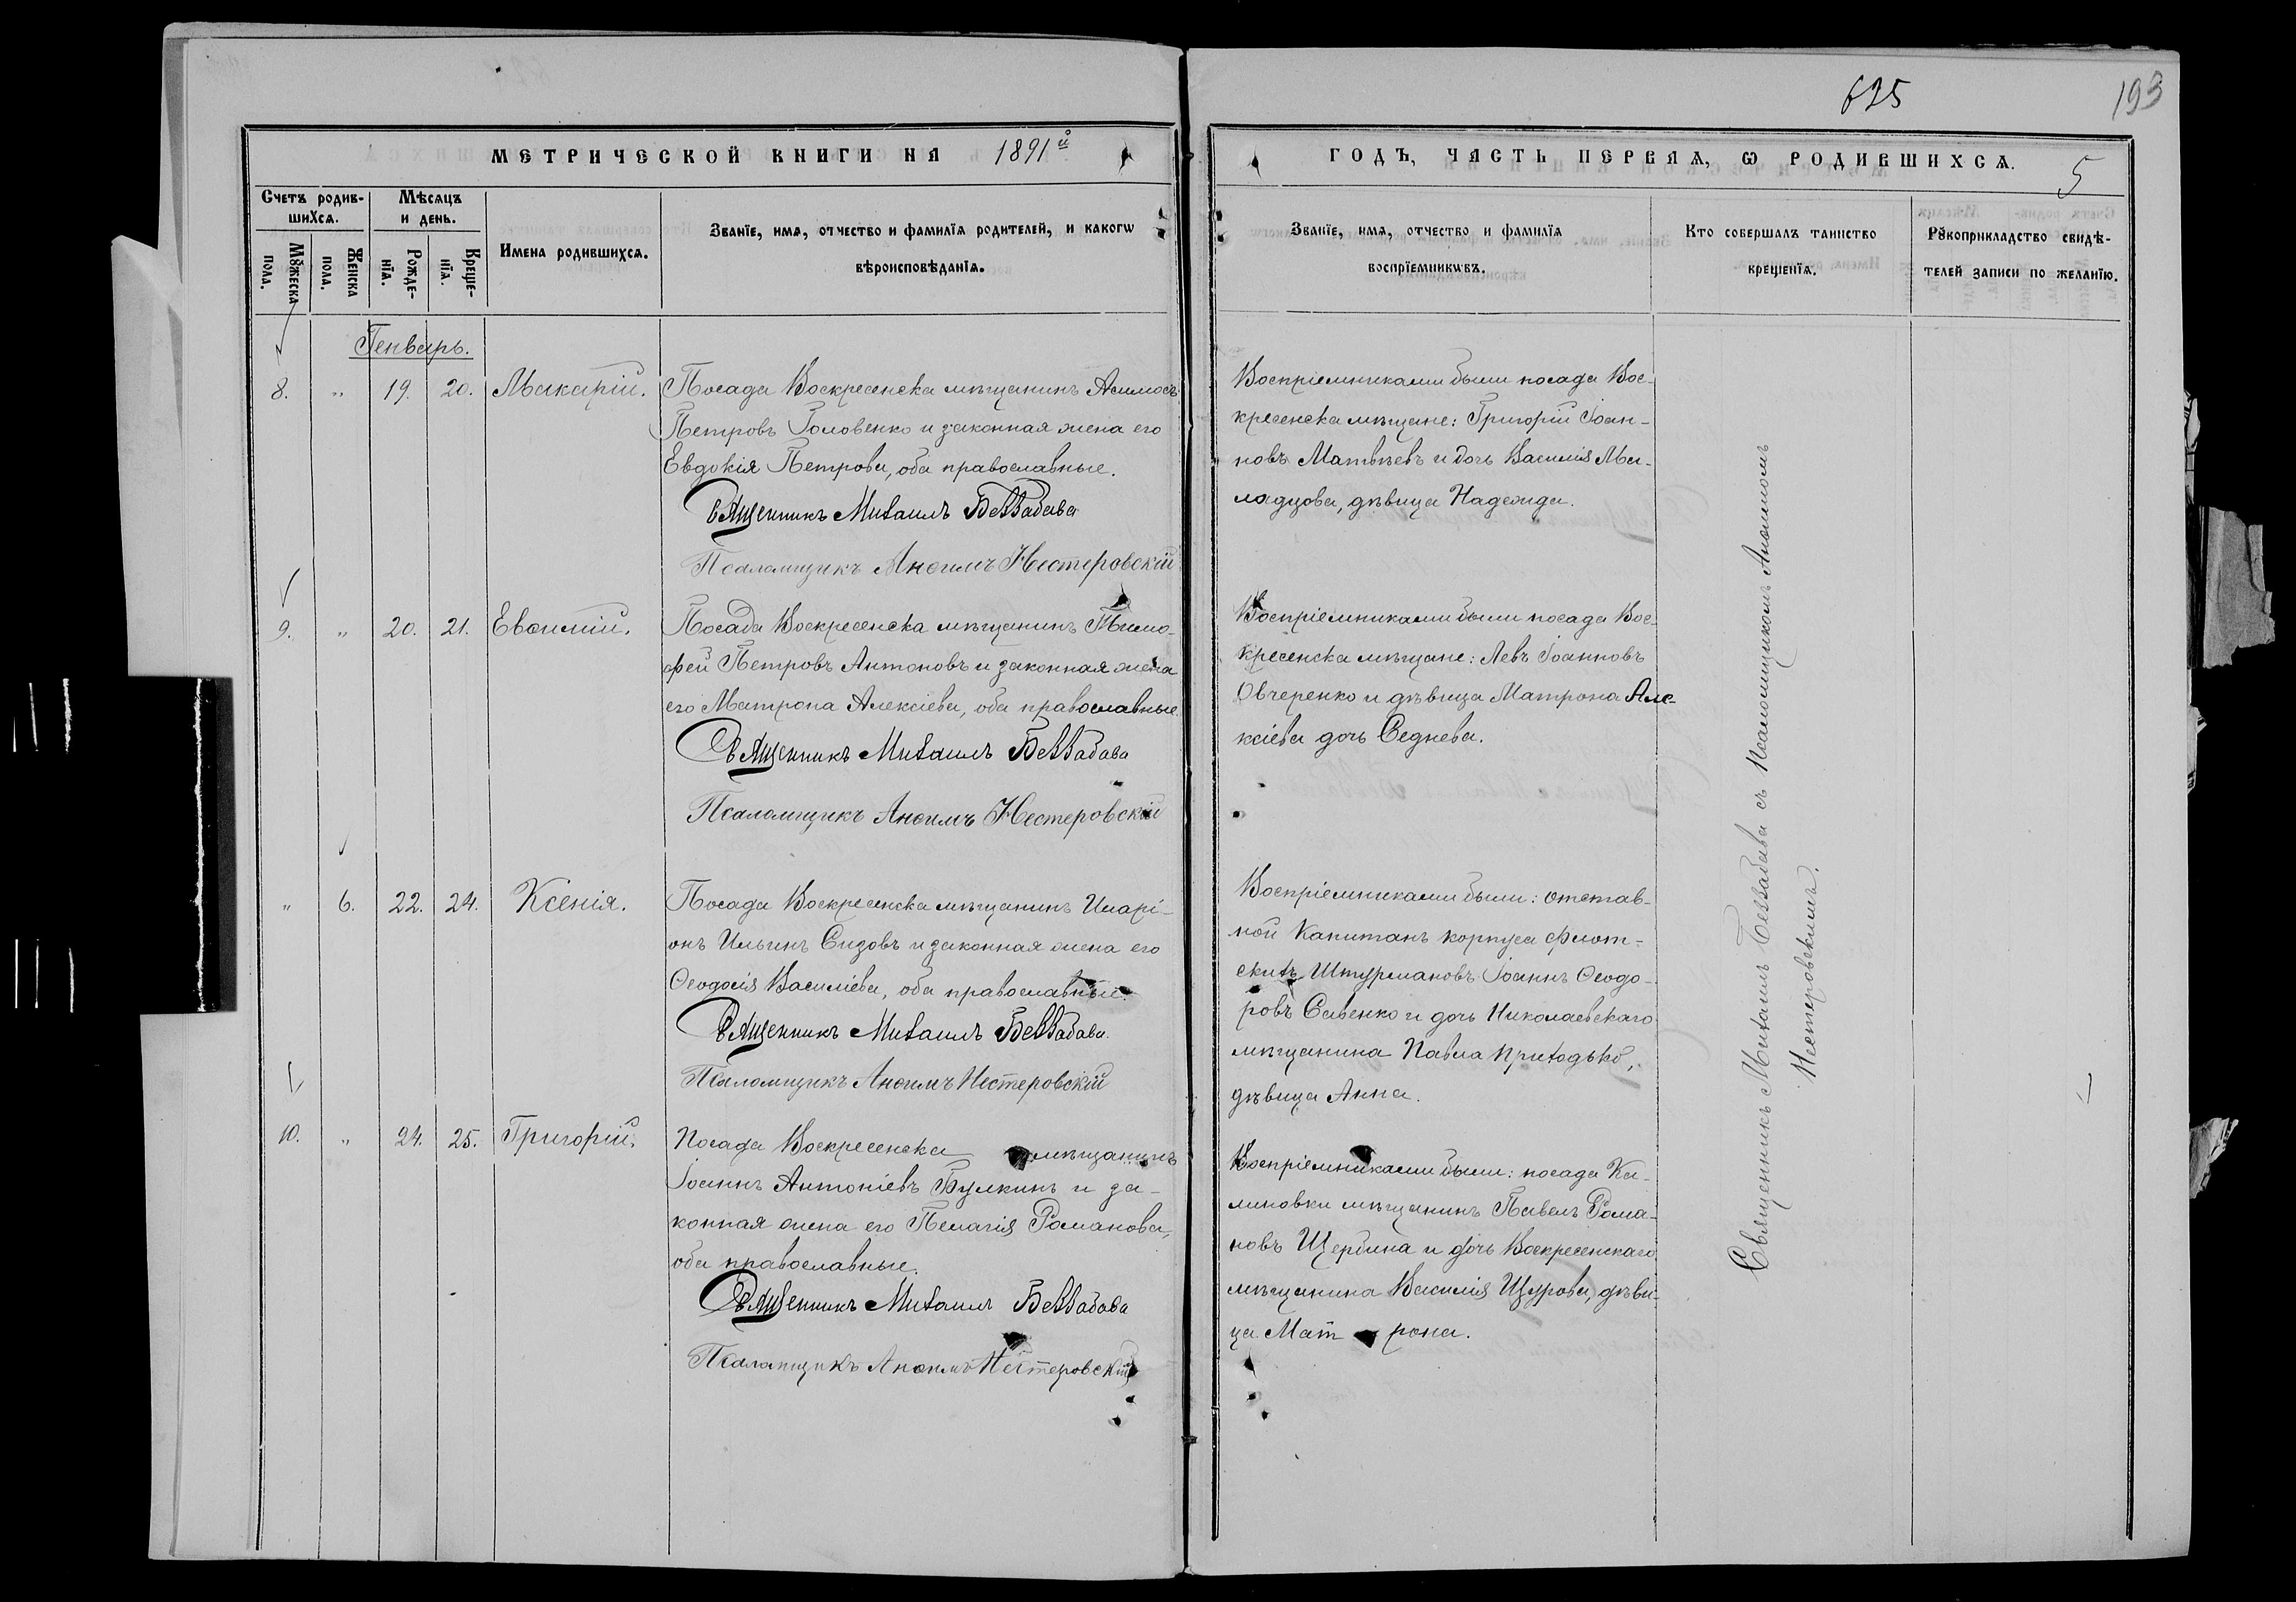 625
193
МЕТРИЧЕСКОЙ КНИГИ НА 1891й
ГОДЪ, ЧАСТЬ ПЕРВАЯ, Ѡ РОДИВШИХСѦ.
5
Счетъ родив-
шихсѧ.
Мѣсѧцъ
и день.
Мꙋжеска
пола.
Женска
пола.
Рожде-
нїѧ.
Креще-
нїѧ.
Имена родившихсѧ.
Званїе, имѧ, отчество и фамилїѧ родителей, и какогѡ
вѣроисповѣданїѧ.
Званїе, имѧ, отчество и фамилїѧ
воспрїемникѡвъ.
Кто совершалъ таинство
крещенїѧ.
Рꙋкоприкладство свидѣ-
телей записи по желанїю.
Генварь.
8. " 19. 20. Макарій.
Посада Воскресенска мѣщанинъ
Петровъ Головенко и законная жена его
Евдокія Петрова, оба православные.
Священникъ Михаилъ Беззабава
Псаломщикъ Анѳимъ Нестеровскій
Воспріемниками были посада Вос-
кресенска мѣщане: Григорій Іоан-
новъ Матвѣевъ и дочь Василія Ма-
ладцова, дѣвица Надежда.
9. " 20. 21. Евѳимій.
Посада Воскресенска мѣщанинъ Тимо-
фей Петровъ Антоновъ и законная жена
его Матрона Алексіева, оба православные.
Священникъ Михаилъ Беззабава
Псаломщикъ Анѳимъ Нестеровскій
Воспріемниками были посада Вос-
кресенска мѣщане: Левъ Іоанновъ
Овчеренко и дѣвица Матрона Але-
ксіева дочь Седнева.
" 6. 22. 24. Ксенія.
Посада Воскресенска мѣщанинъ Иларі-
онъ Ильинъ Сизовъ и законная жена его
Ѳеодосія Василіева, оба православные.
Священникъ Михаилъ Беззабава.
Псаломщикъ Анѳимъ Нестеровскій
Воспріемниками были: отстав-
ной Капитанъ корпуса флот-
скихъ Штурмановъ Іоаннъ Ѳеодо-
ровъ Савенко и дочь Николаевскаго
мѣщанина Павла Приходько,
дѣвица Анна.
10. " 24. 25. Григорій.
Посада Воскресенска мѣщанинъ
Іоаннъ Антоніевъ Булкинъ и за-
конная жена его Пелагія Романова,
оба православные.
Священникъ Михаилъ Беззабава
Псаломщикъ Анѳимъ Нестеровскій
Воспріемниками были: посада Ка-
линовки мѣщанинъ Павелъ Рома-
новъ Щербина и дочь Воскресенскаго
мѣщанина Василія Щурова, дѣви-
ца Матрона.
Священникъ Михаилъ Беззабава съ псаломщикомъ Анѳимомъ
Нестеровскимъ.